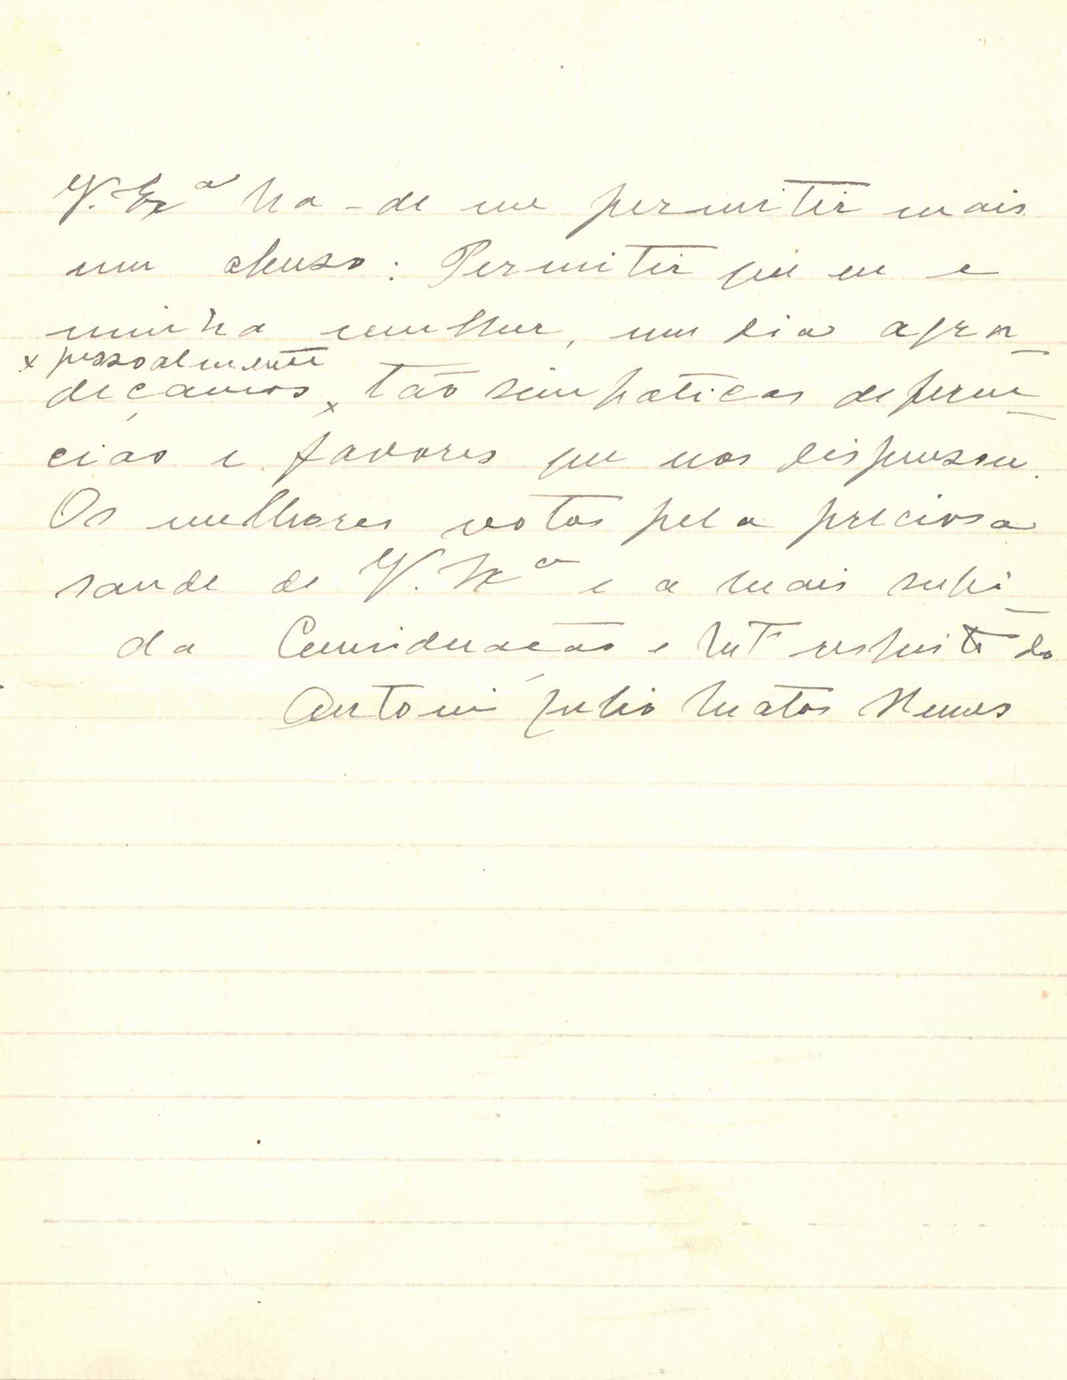 V. Exª ha-de me permitir mais
um abuso: Permitir que eu e
minha mulher, um dia agra-
x pessoalmente
deçamos x tão simpáticas deferen-
cias e favores que nos dispensou.
Os melhores votos pela preciosa
saude de V. Exª e a mais subi-
da Consideração e mtº respeito do
Antonio Julio Matos Nunes